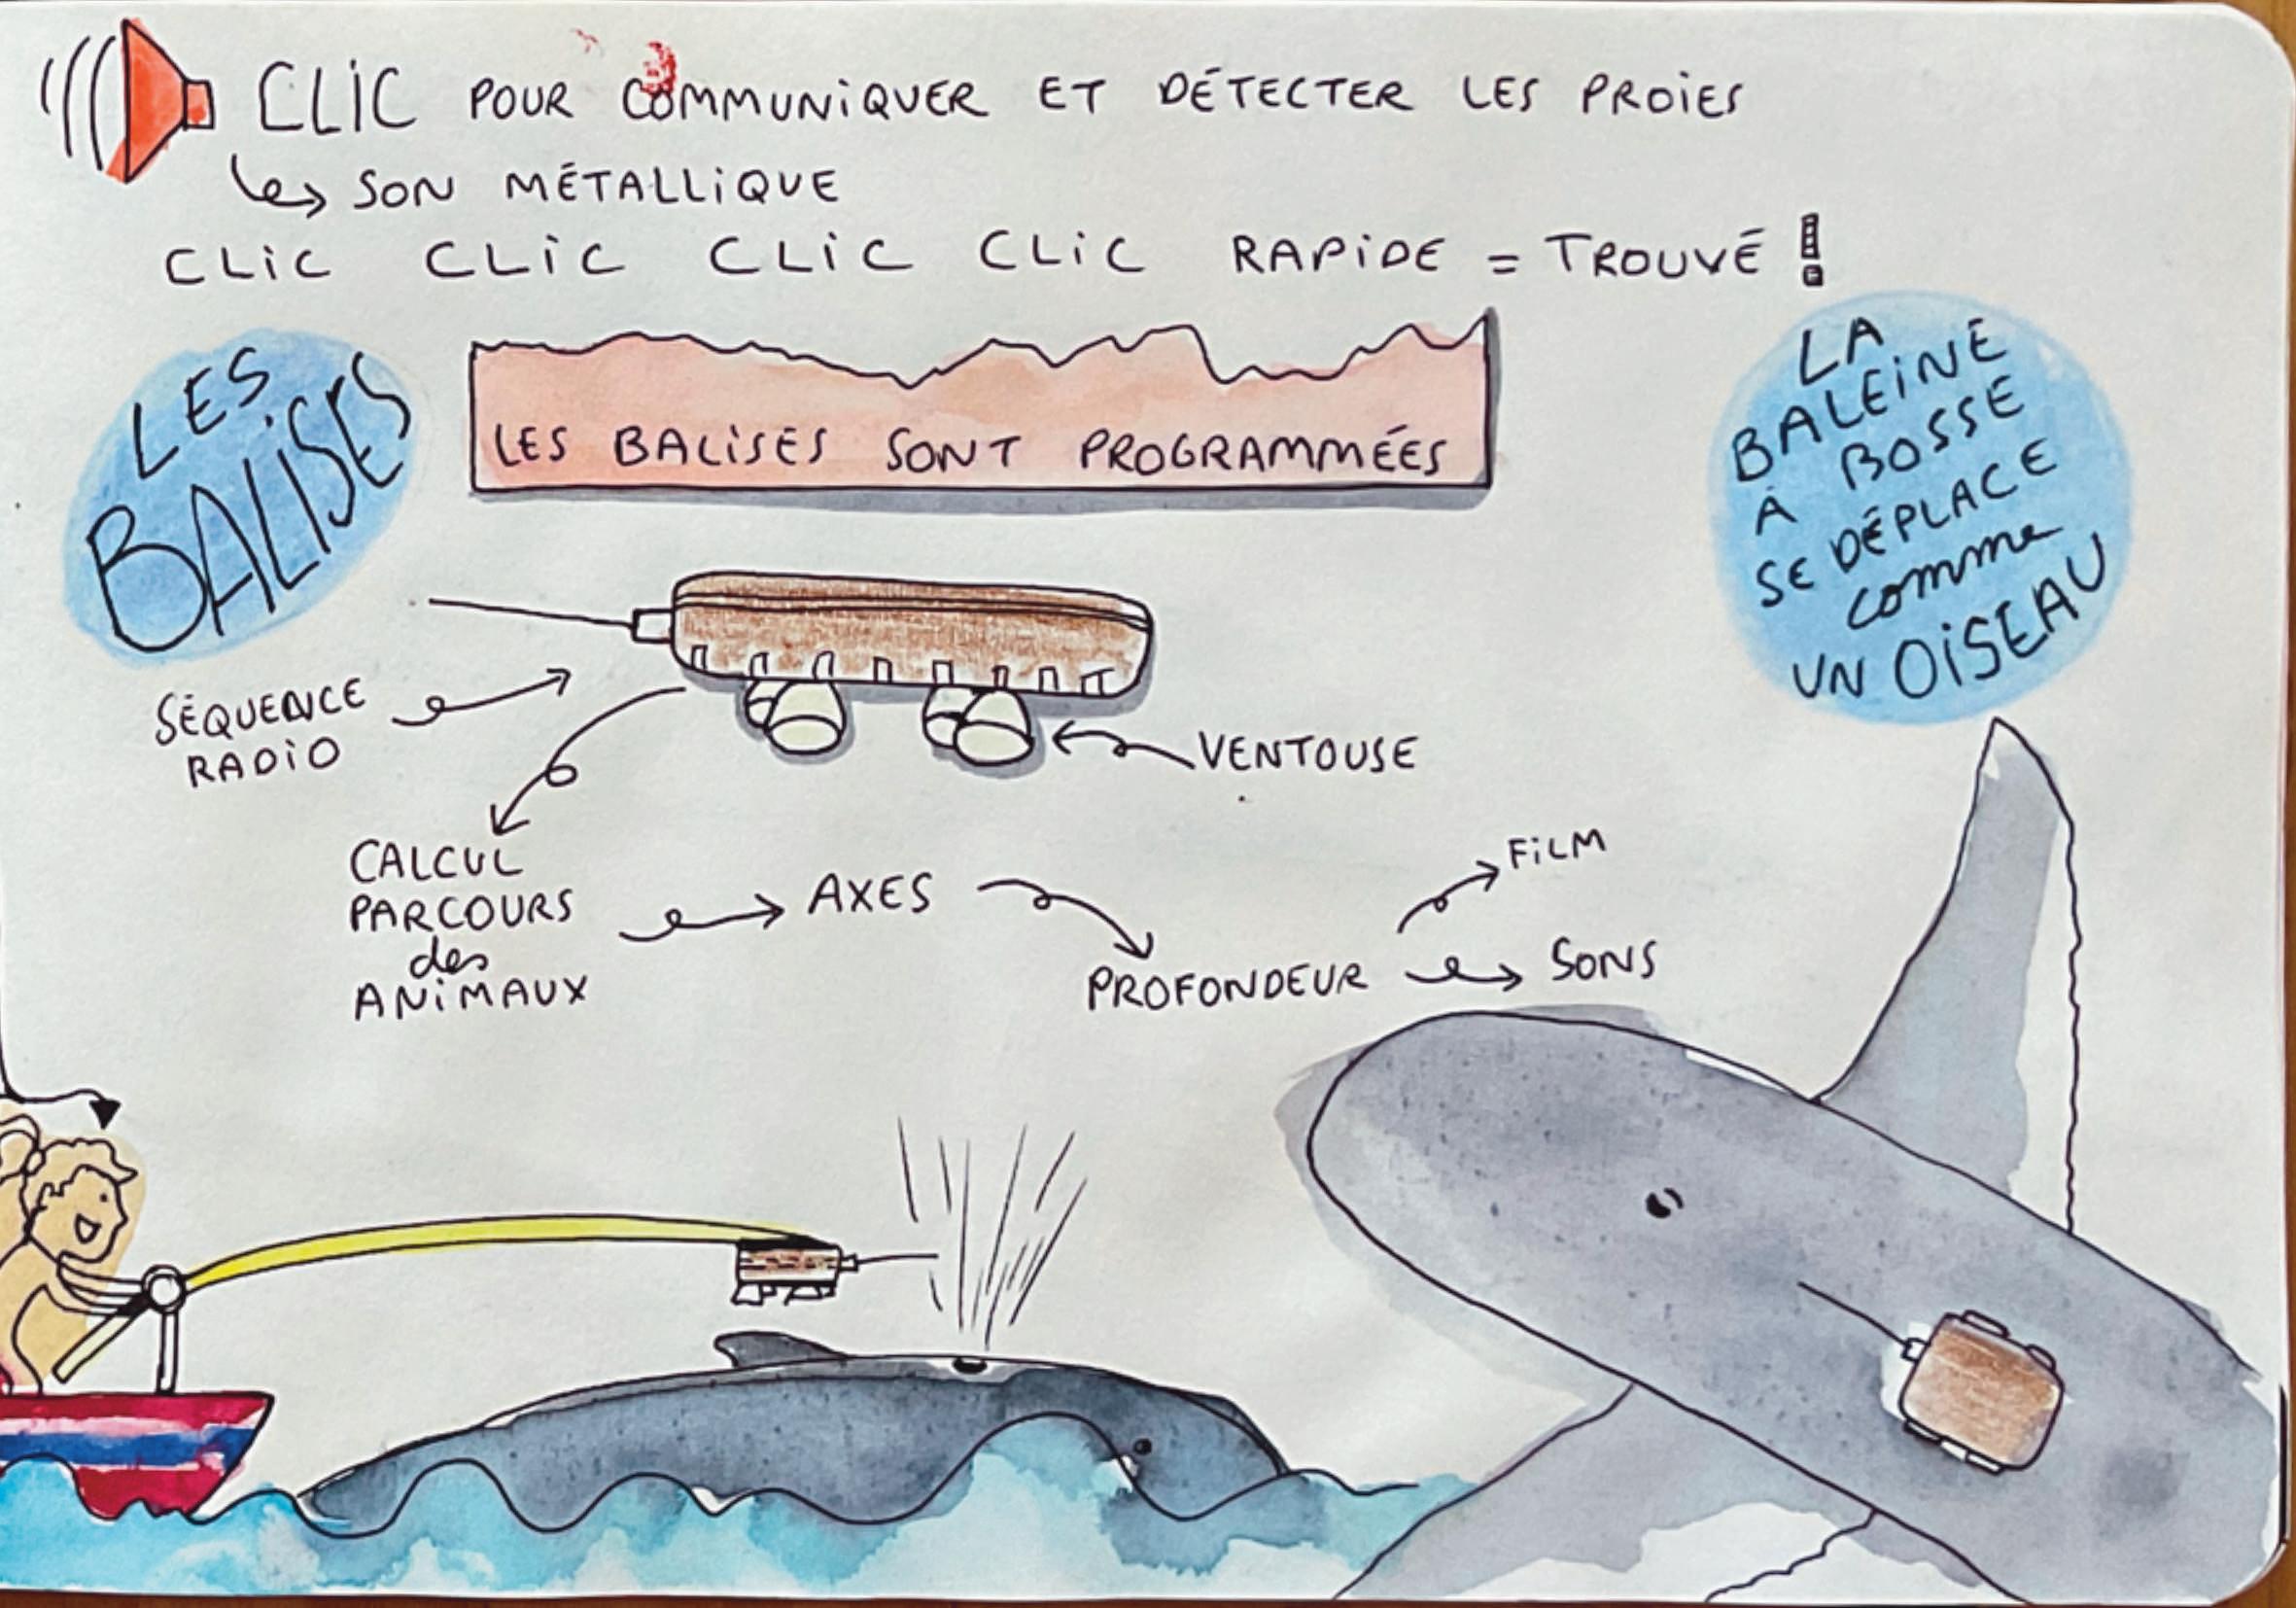 CLiC POUR COMMUNiQUER ET DÉTECTER LES PROiES
SON MÉTALLiQUE
CLiC CLiC CLiC CLiC RAPiDE = TROUVÉ !
LES
BALiSES
LES BALiSES SONT PROGRAMMÉES
LA
BALEiNE
À BOSSE
SE DÉPLACE
comme
UN OiSEAU
SÉQUENCE
RADiO
VENTOUSE
CALCUL
PARCOURS
des
ANiMAUX
AXES
PROFONDEUR
FiLM
SONS